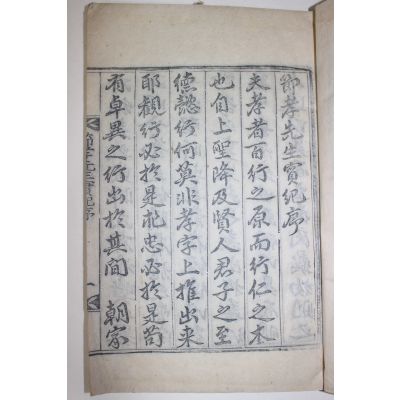 節孝先生實紀序
夫孝者百行之原而行仁之本
也自上聖降及賢人君子之至
德懿行何莫非孝字上推出來
耶觀行必於是求忠必於是苟
有卓異之行出於其間 朝家
節孝先生實紀序